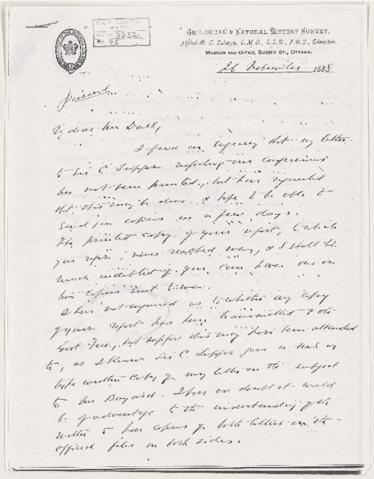 GEOLOGICAL & NATURAL HISTORY SURVEY.
Alfred R. C. Selwyn, C.M.G., L.L.D., F.R.S., Director.
MUSEUM AND OFFICE, SUSSEX ST., OTTAWA.
26 November 1888
Private
My dear Mr Dall,
I find on enquiry that my letter
to Sir C. Tupper respecting our conferences
has not been printed, but have requested
that this may be done & hope to be able to
send you copies in a few days.
The printed copy of your report, & article
you refer to never reached me, & I shall be
much indebted if you can have one or
two copies sent
I have not enquired as to whether any copy
of your report has been transmitted to the
Govt. here, but suppose this may have been attended
to, as I know Sir C. Tupper gave a
type written copy of my letter on the subject
to Mr Bayard. I have no doubt it would
be of advantage to the understanding of the
matter to have copies of both letters on the
official files on both sides.